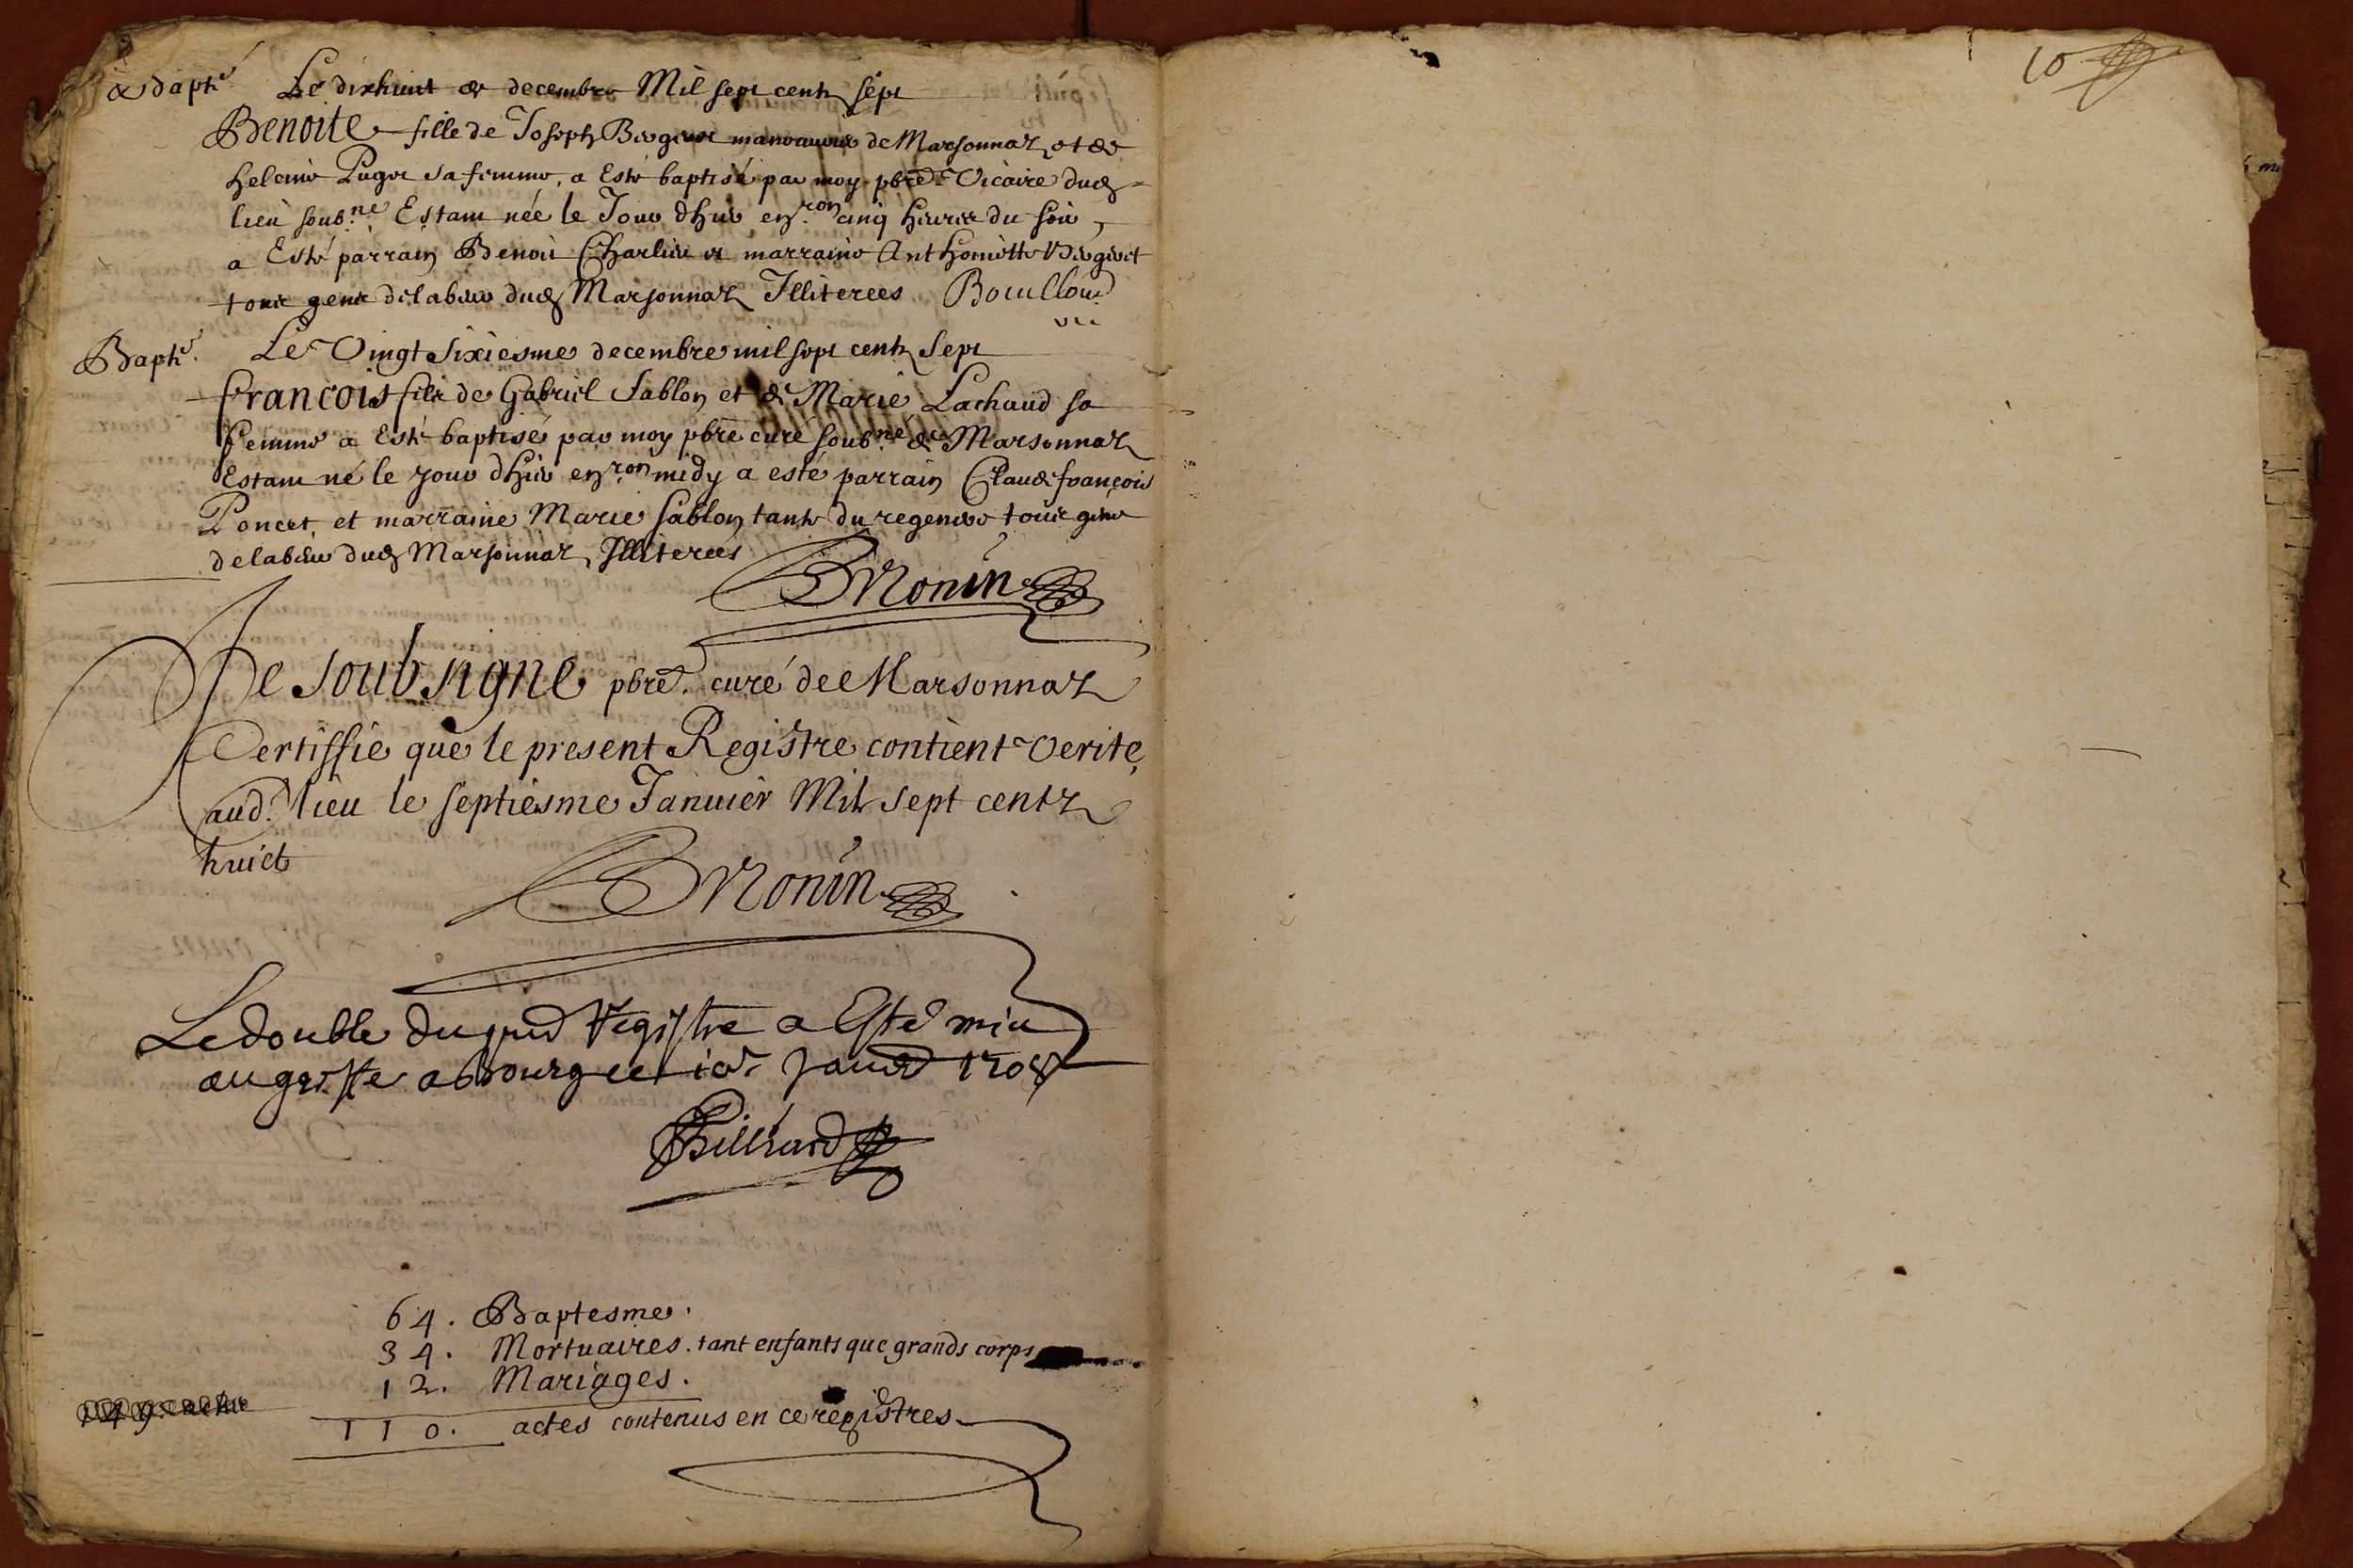 Bapt.e Le dixhuict de decembre Mil sept cents sept
Benoite fille de Joseph manouvrier de Marsonnaz et de
helaine Puget sa femme, a Esté baptisé par moy pbre Vicaire dud
lieu soub.né Estant née le Jour dhui en.ron cinq heures du soir,
a Esté parrain Benoit Charlin et marraine Anthoniette
tous gens de labeur dud Marsonnaz Illiterees Bouilloud
vic
Bapt.e Le Vingt sixiesme decembre mil sept cents Sept
francois fils de Gabriel Sablon et de Marie Lachaud sa
femme a Esté baptisé par moy pbre curé soub.né de Marsonnaz
Estant né le jour dhui en.ron midy a esté parrain Claude françois
Poncet et marraine Marie Sablon tante du tous gens
de labeur dud Marsonnaz Illiterees
BMonin
Je soubsigné pbre. curé de Marsonnaz
Certiffie que le present Registre contient verite,
aud. lieu le septiesme Januier Mil sept centz
huict
BMonin
Le double du pnt Registre a Esté mis
au greffe a bourg ce janvr 1708
Billiard
64. Baptesme.
34. Mortuaires. tant enfants que grands corps
12. Mariages.
110. actes contenus en ce registres
10